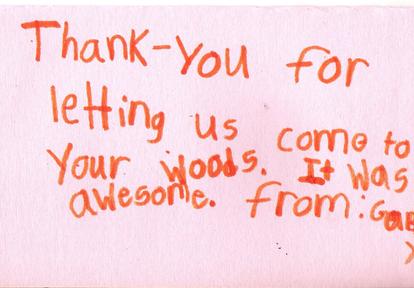 Thank-You for
letting us come to
Your woods. It was
awesome. from: